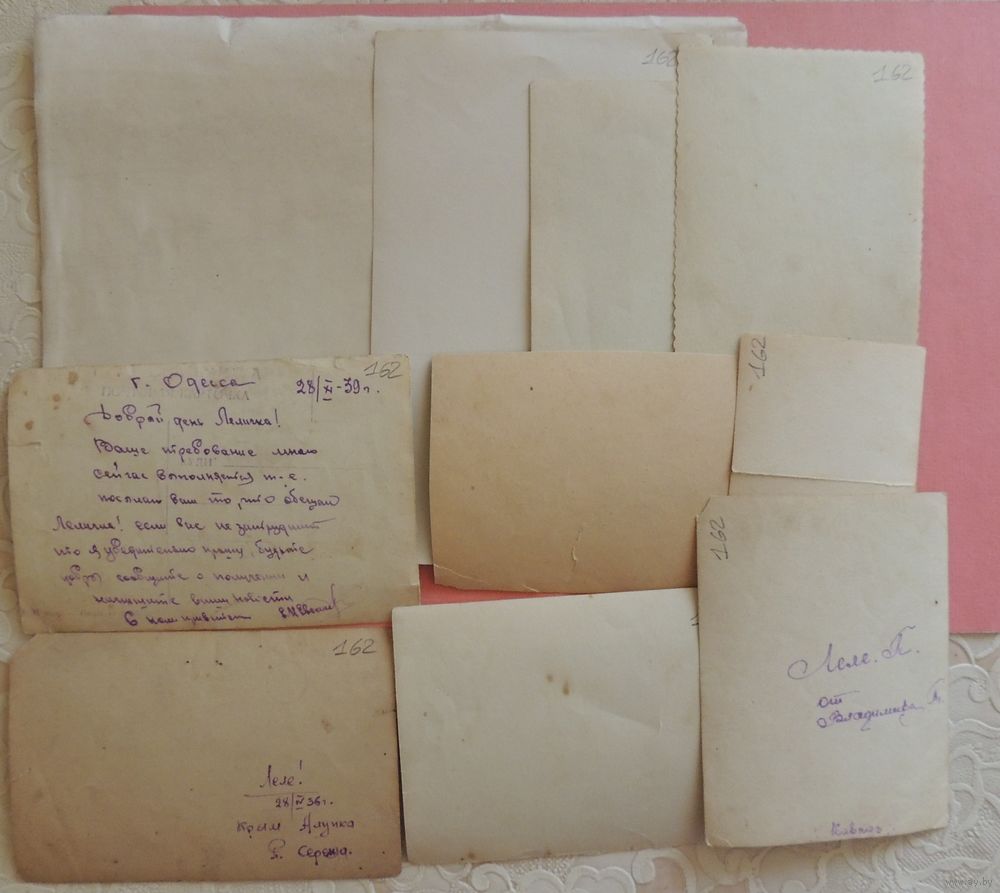 162
162
162
162
г. Одесса 28/XI-39 г.
Добрый день Лёличка!
Ваше требование мною
сейчас выполняется т-е.
посылаю вам то, что обещал
Лёличка! если вас не затруднит
то я убедительно прошу, будьте
добры сообщите о получении и
напишите ваши новости
С ком приветом
162
Леле. П.
от
Владимира П.
162
Леле!
36 г.
Крым Алупка
Сережа.
www.ay.by